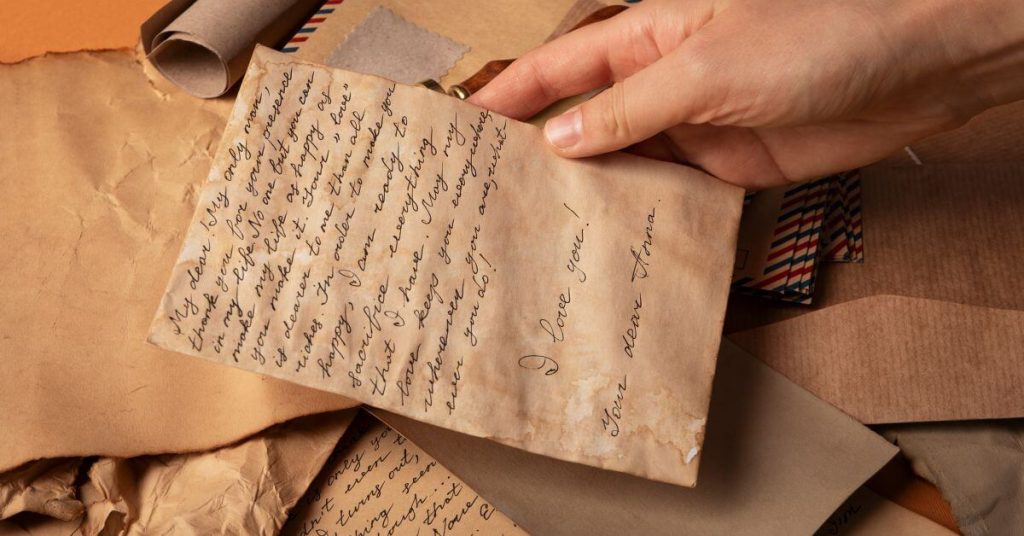 My dear! My only mom,
thank you for your presence
in my life. No one but you can
make my life as happy as
you make it. Your "love"
is dearer to me than all
riches. In order to make you
happy, I am ready to
sacrifice everything
that I have. May my
love keeps you everywhere
wherever you are, what
ever you do!
I love you!
Your dear Anna.
only
even
turns out,
seen
that